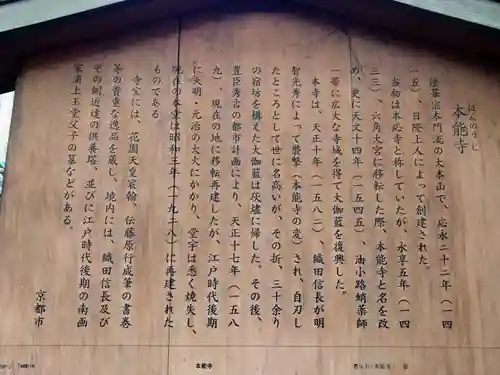 ほんのうじ
本能寺
法華宗本門流の大本山で、応永二十二年（一四
一五）、日隆上人によって創建された。
当初は本応寺と称していたが、永享五年（一四
三三）、六角大宮に移転した際、本能寺と名を改
め、更に天文十四年（一五四五）、油小路蛸薬師
一帯に広大な寺域を得て大伽藍を復興した。
本寺は、天正十年（一五八二）、織田信長が明
智光秀によって襲撃（本能寺の変）され、自刃し
たところとして世に名高いが、その折、三十余り
の宿坊を構えた大伽藍は灰墟に帰した。その後、
豊臣秀吉の都市計画により、天正十七年（一五八
九）、現在の地に移転再建したが、江戸時代後期
に天明・元治の大火にかかり、堂宇は悉く焼失し、
現在の本堂は昭和三年（一九二八）に再建された
ものである。
寺宝には、花園天皇宸翰、伝藤原行成筆の書巻
等の貴重な逸品を蔵し、境内には、織田信長及び
その側近達の供養塔、並びに江戸時代後期の南画
家浦上玉堂父子の墓などがある。
京都市
Temple
本能寺